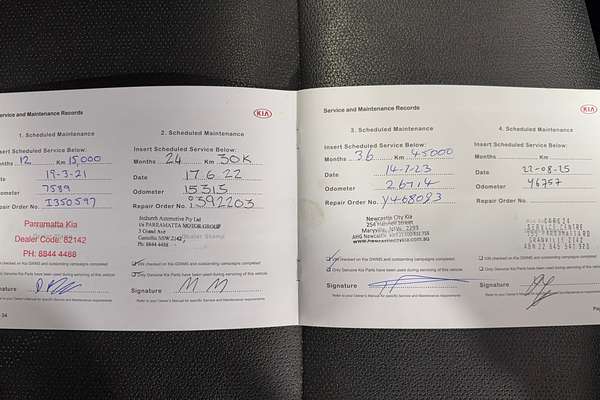 Service and Maintenance Records
KIA
1. Scheduled Maintenance
Insert Scheduled Service Below:
Months 12 Km 15,000
Date 19-3-21
Odometer 7589
Repair Order No. I350597
Parramatta Kia
Dealer Code: 82142
PH: 8844 4488
VIN checked on the GWMS and outstanding campaigns completed
Only Genuine Kia Parts have been used during servicing of this vehicle
Signature
Refer to your Owner's Manual for specific Service and Maintenance requirements
34
2. Scheduled Maintenance
Insert Scheduled Service Below:
Months 24 Km 30K
17.6.22
Odometer 15315
Repair Order No. 0392203
Automotive Pty Ltd
t/a PARRAMATTA MOTOR GROUP
2 Grand Ave
Camellia NSW 2142
Ph: 8844 4488
Dealer Stamp
VIN checked on the GWMS and outstanding campaigns completed
Only Genuine Kia Parts have been used during servicing of this vehicle
Signature MM
Refer to your Owner's Manual for specific Service and Maintenance requirements
Service and Maintenance Records
KIA
3. Scheduled Maintenance
Insert Scheduled Service Below:
Months 36 Km 45000
Date 14-7-23
Odometer 26714
Repair Order No. Y468083
Newcastle City Kia
Street
Maryville, NSW, 2293
AHG Newcastle
www.newcastlecitykia.com.au
VIN checked on the GWMS and outstanding campaigns completed
Only Genuine Kia Parts have been used during servicing of this vehicle
Signature
Refer to your Owner's Manual for specific Service and Maintenance requirements
4. Scheduled Maintenance
Insert Scheduled Service Below:
Months Km
Date 22-08-25
Odometer 46757
Repair Order No.
SERVICE CENTRE
PARRAMATTA RD
GRANVILLE 2142
VIN checked on the GWMS and outstanding campaigns completed
Only Genuine Kia Parts have been used during servicing of this vehicle
Signature
Refer to your Owner's Manual for specific Service and Maintenance requirements